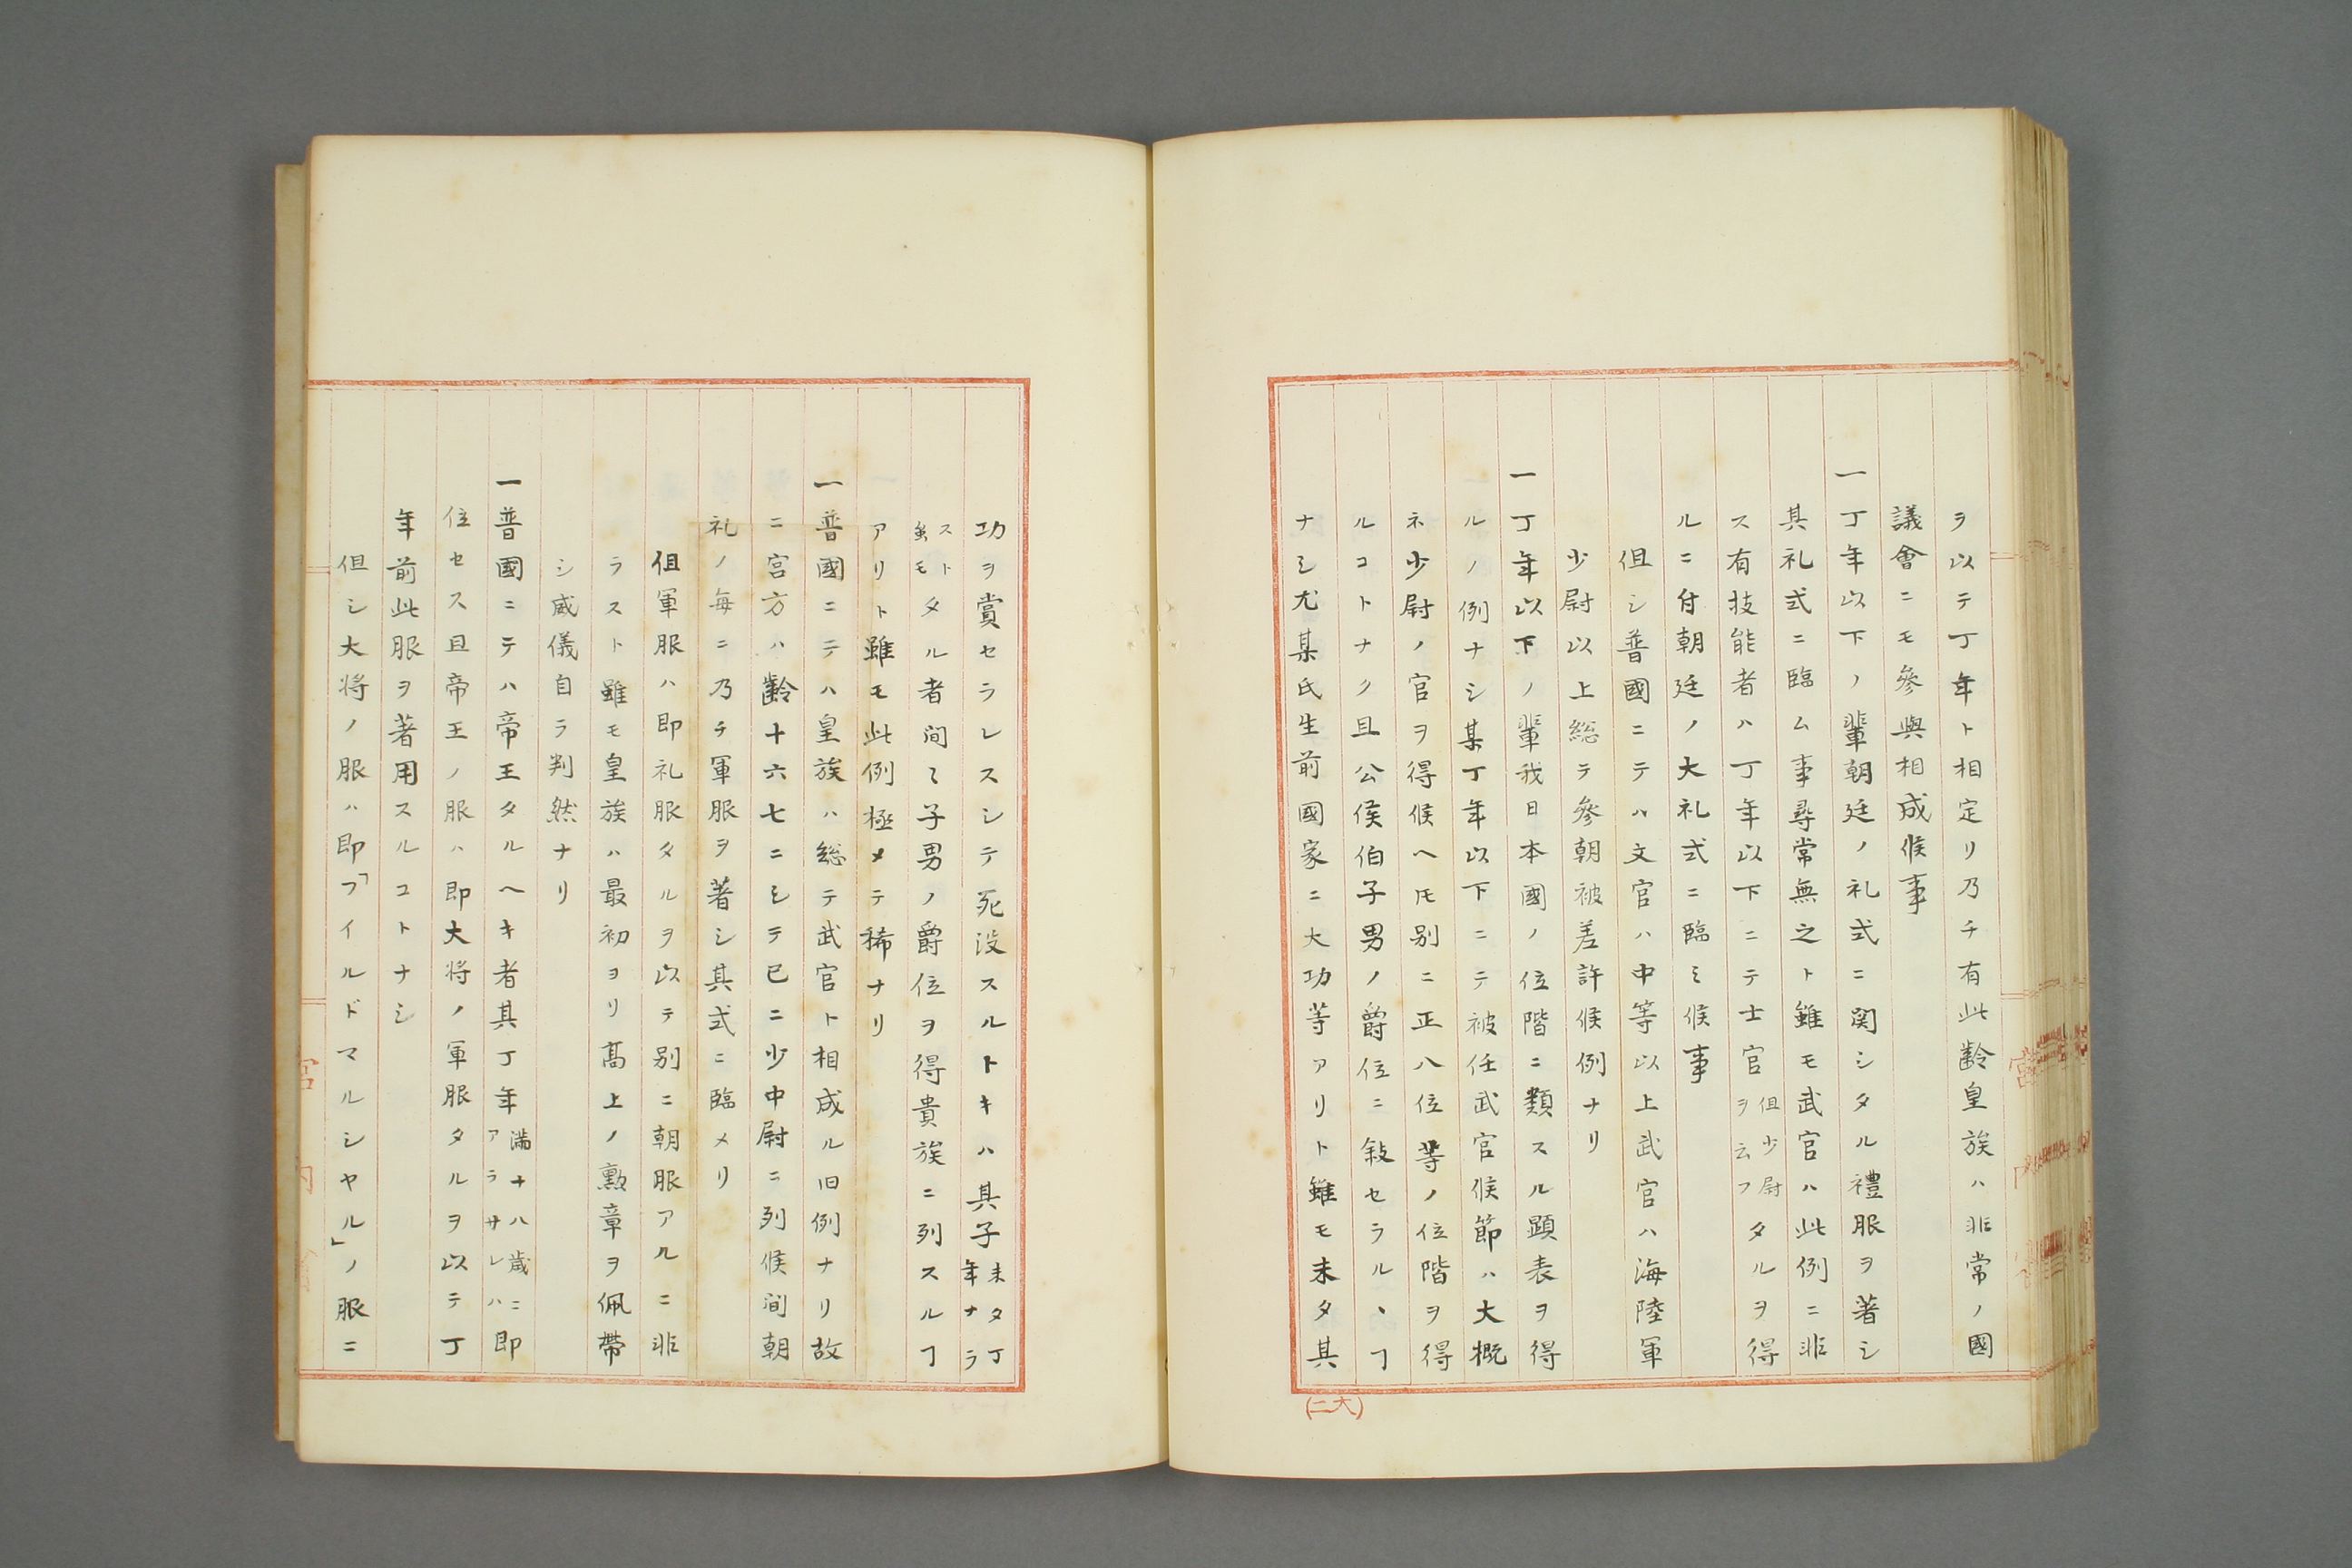 ヲ以テ丁年ト相定リ乃チ有此齢皇族ハ非常ノ國
議會ニモ參與相成候事
一丁年以下ノ輩朝廷ノ礼式ニ関シタル禮服ヲ著シ
其礼式ニ臨ム事尋常無之ト雖モ武官ハ此例ニ非
ス有技能者ハ丁年以下ニテ士官但少尉ヲ云フタルヲ得
ルニ付朝廷ノ大礼式ニ臨ミ候事
但シ普國ニテハ文官ハ中等以上武官ハ海陸軍
少尉以上総テ參朝被差許候例ナリ
一丁年以下ノ輩我日本國ノ位階ニ類スル顕表ヲ得
ルノ例ナシ某丁年以下ニテ被任武官候節ハ大概
ネ少尉ノ官ヲ得候ヘ𪜈別ニ正八位等ノ位階ヲ得
ルコトナク且公侯伯子男ノ爵位ニ敍セラルヽヿ
ナシ尤某氏生前國家ニ大功等アリト雖モ未タ其
(二大)
功ヲ賞セラレスシテ死没スルトキハ其子未タ丁年ナラ
スト虽モタル者间〻子男ノ爵位ヲ得貴族ニ列スルヿ
アリト雖モ此例極メテ稀ナリ
一普國ニテハ皇族ハ総テ武官ト相成ル旧例ナリ故
ニ宮方ハ齢十六七ニシテ已ニ少中尉ニ列候间朝
礼ノ毎ニ乃チ軍服ヲ著シ其式ニ臨メリ
但軍服ハ即礼服タルヲ以テ別ニ朝服アルニ非
ラスト雖モ皇族ハ最初ヨリ髙上ノ勲章ヲ佩帶
シ威儀自ラ判然ナリ
一普國ニテハ帝王タルヘキ者其丁年満十八歳ニアラサレハ即
位セス且帝王ノ服ハ即大将ノ軍服タルヲ以テ丁
年前此服ヲ著用スルコトナシ
但シ大将ノ服ハ即「フイルドマルシヤル」ノ服ニ